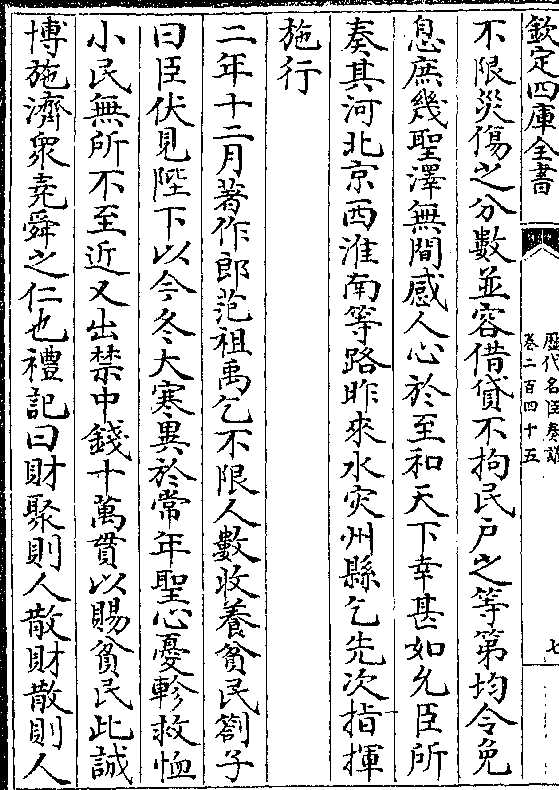 欽定四庫全書
歷代名臣奏議
卷二百四十五
七
不限災傷之分數並容借貸不拘民戶之等第均令免
息庶幾聖澤無間感人心於至和天下幸甚如允臣所
奏其河北京西淮南等路昨來水灾州縣乞先次指揮
施行
二年十二月著作郎范祖禹乞不限人數收養貧民劄子
曰臣伏見陛下以今冬大寒異於常年聖心憂軫救恤
小民無所不至近又出禁中錢十萬貫以賜貧民此誠
博施濟衆堯舜之仁也禮記曰財聚則人散財散則人